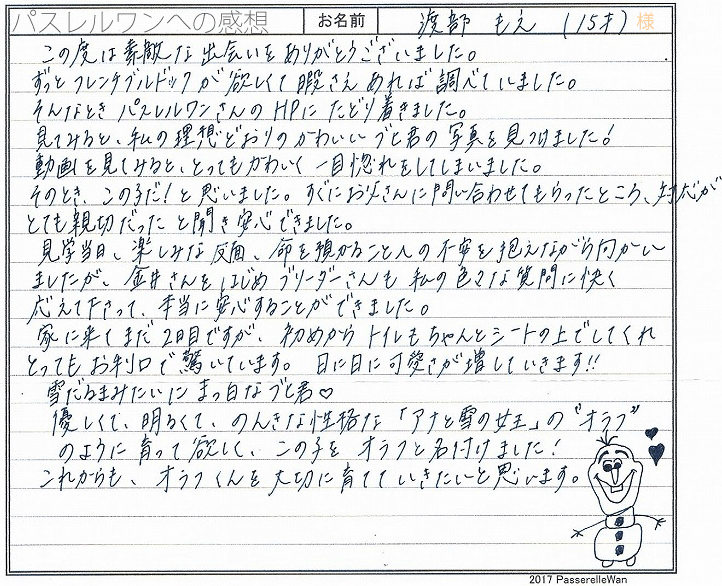 パスレルワンへの感想 お名前 渡部 もえ (15才) 様
この度は素敵な出会いをありがとうございました。
ずっとフレンチブルドックが欲しくて暇さえあれば調べていました。
そんなときパスレルワンさんのHPにたどり着きました。
見てみると、私の理想どおりのかわいいブヒ君の写真を見つけました!
動画を見てみると、とってもかわいく一目惚れをしてしまいました。
そのとき、この子だ!と思いました。すぐにお父さんに問い合わせてもらったところ、対応が
とても親切だったと聞き安心できました。
見学当日、楽しみな反面、命を預かることへの不安を抱えながら向かい
ましたが、金井さんをはじめブリーダーさんも私の色々な質問に快く
応えて下さって、本当に安心することができました。
家に来てまだ2日目ですが、初めからトイレもちゃんとシートの上でしてくれ
とってもお利口で驚いています。日に日に可愛さが増していきます!!
雪だるまみたいにまっ白なブヒ君♡
優しくて、明るくて、のんきな性格な「アナと雪の女王」の"オラフ"
のように育って欲しく、この子をオラフと名付けました!
これからも、オラフくんを大切に育てていきたいと思います。
2017 PasserelleWan